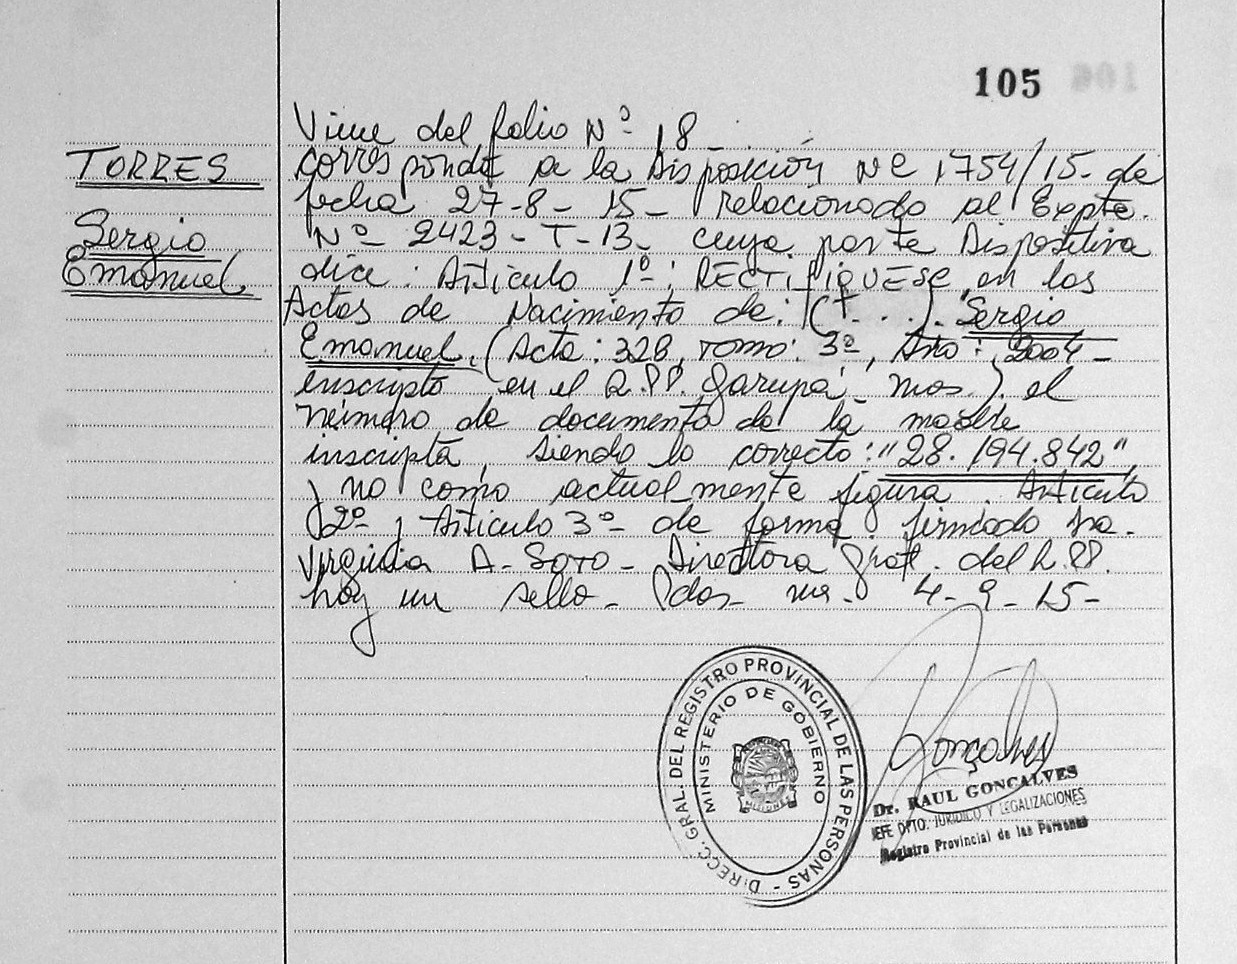 105
Viene del folio Nº 18
TORRES
Sergio
Emanuel
corresponde a la Disposición Nº 1754/15- de
fecha 27-8-15- relacionado al Expte.
Nº- 2423-T-13- cuya parte Dispositiva
dice: Artículo 1º: RECTIFIQUESE en las
Actas de Nacimiento de: (...). Sergio
Emanuel, (Acta: 328, Tomo: 3º, Año: 2004-
inscripto en el R.PP. Garupá- Mnes.) el
número de documento de la madre
inscripta, siendo lo correcto: "28.194.842"
y no como actualmente figura. Artículo
2º y Artículo 3º- de forma. firmado Dra.
Virginia A. Soto- Directora Gral. del R.PP.
hay un sello- Pdas- Mnes- 4-9-15-
DIRECC. GRAL. DEL REGISTRO PROVINCIAL DE LAS PERSONAS -
MINISTERIO DE GOBIERNO
MISIONES
Goncalves
Dr. RAUL GONCALVES
JEFE DPTO. JURIDICO Y LEGALIZACIONES
Registro Provincial de las Personas